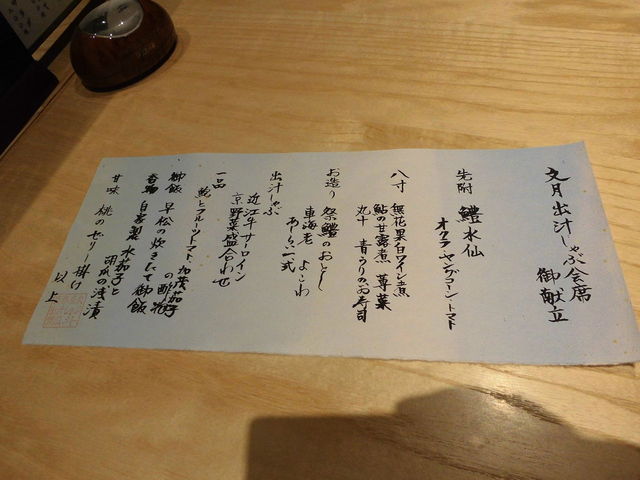 文月出汁しゃぶ会席
御献立
先附 鱧水仙
オクラ ヤングコーン トマト
八寸 無花果白ワイン煮
鮎の甘露煮 蓴菜
丸十 青うりのお寿司
お造り 祭鱧のおとし
車海老 よこわ
あしらい一式
出汁しゃぶ
近江牛サーロイン
京野菜盛合わせ
一品
鮑とフルーツトマト、加茂茄子
の酢物
御飯 早松の炊きたて御飯
香物 自家製 水茄子と
胡瓜の浅漬
甘味 桃のゼリー掛け
以上